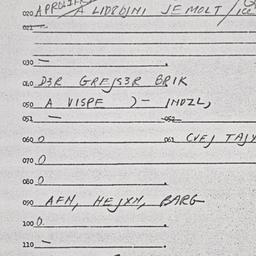 020 A LIDRDINI JEMOLT /
022 —
030 —
040 D3R GREJS3R BRIK
050 A VISPE )- INDZL,
051 — 052
060 0 061 CVEJ TAJX
070 0
080 0
090 AFN, HEJXN, BARG
100 0.
110 —